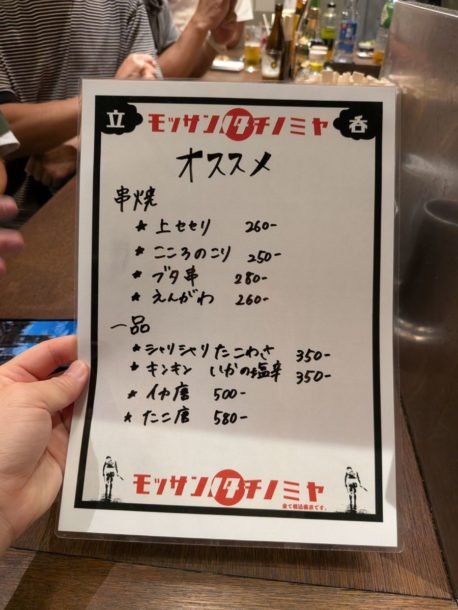 立 モッサンタチノミヤ 呑
オススメ
串焼
★ 上セセリ 260-
★ こころのこり 250-
★ ブタ串 280-
★ えんがわ 260-
一品
★ シャリシャリたこわさ 350-
★ キンキン いかの塩辛 350-
★ イカ唐 500-
★ たこ唐 580-
モッサンタチノミヤ
全て税込価格です。